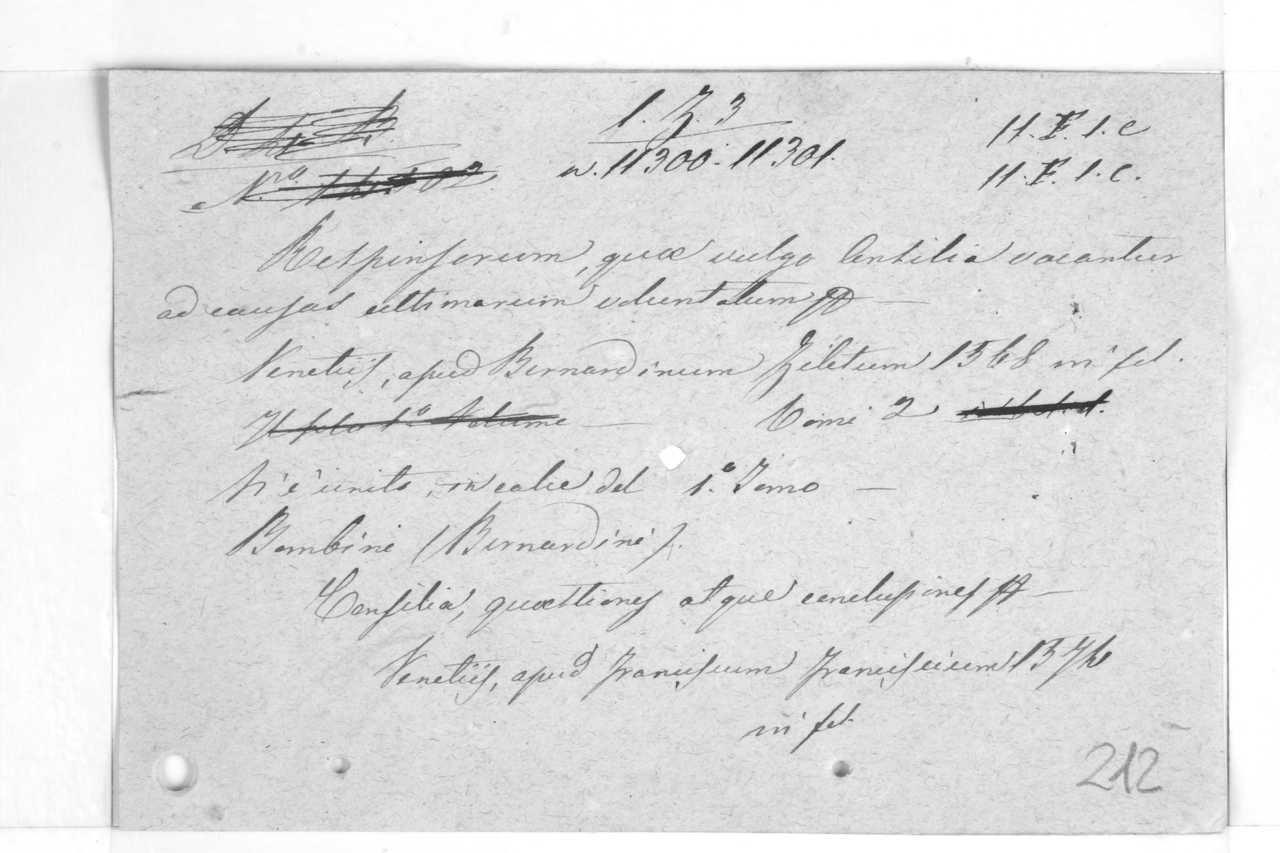 1. Z. 3
n. 11300. 11301.
11. F. 1. c
11. F. 1. c.
N.ro
Responsorum, quæ vulgo Consilia vocantur
ad causas ultimarum voluntatum
Venetiis, apud Bernardinum Ziletum 1568 in fol.
Il solo 1.o Volume — Tomi 2
Vi è unito, in calce del 1.o Tomo —
Bombini (Bernardini).
Consilia, quæstiones atque conclusiones —
Venetiis, apud Franciscum Franciscium 1574
in fol.
212